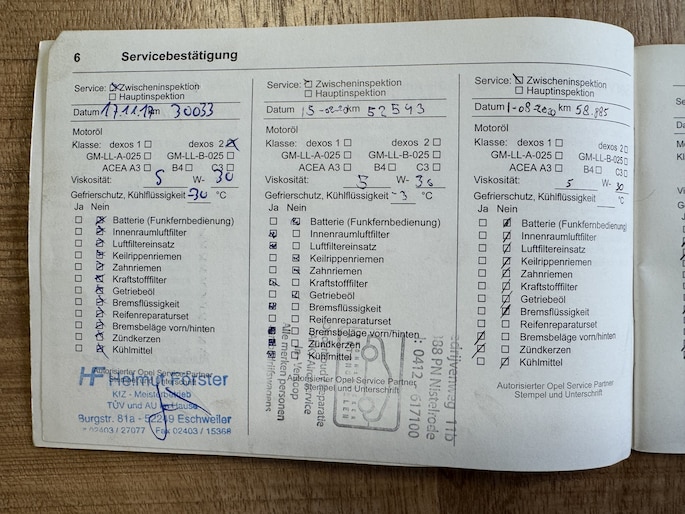 6 Servicebestätigung
Service: Zwischeninspektion
Hauptinspektion
Datum 17.11.17 km 30033
Motoröl
Klasse: dexos 1 dexos 2
GM-LL-A-025 GM-LL-B-025
ACEA A3 B4 C3
Viskosität: 5 W- 30
Gefrierschutz, Kühlflüssigkeit -30 °C
Ja Nein
Batterie (Funkfernbedienung)
Innenraumluftfilter
Luftfiltereinsatz
Keilrippenriemen
Zahnriemen
Kraftstofffilter
Getriebeöl
Bremsflüssigkeit
Reifenreparaturset
Bremsbeläge vorn/hinten
Zündkerzen
Kühlmittel
Autorisierter Opel Service Partner
HF Helmut Förster
KfZ - Meisterbetrieb
TÜV und AU im Hause
Burgstr. 81a - 52249 Eschweiler
02403 / 27077 Fax 02403 / 15366
Service: Zwischeninspektion
Hauptinspektion
Datum 15-02-20 km 52543
Motoröl
Klasse: dexos 1 dexos 2
GM-LL-A-025 GM-LL-B-025
ACEA A3 B4 C3
Viskosität: 5 W- 30
Gefrierschutz, Kühlflüssigkeit °C
Ja Nein
Batterie (Funkfernbedienung)
Innenraumluftfilter
Luftfiltereinsatz
Keilrippenriemen
Zahnriemen
Kraftstofffilter
Getriebeöl
Bremsflüssigkeit
Reifenreparaturset
Bremsbeläge vorn/hinten
Zündkerzen
Kühlmittel
Autorisierter Opel Service Partner
Stempel und Unterschrift
Alle merken personen
6171100
Service: Zwischeninspektion
Hauptinspektion
Datum 1-08-2020 km 58.885
Motoröl
Klasse: dexos 1 dexos 2
GM-LL-A-025 GM-LL-B-025
ACEA A3 B4 C3
Viskosität: 5 W- 30
Gefrierschutz, Kühlflüssigkeit °C
Ja Nein
Batterie (Funkfernbedienung)
Innenraumluftfilter
Luftfiltereinsatz
Keilrippenriemen
Zahnriemen
Kraftstofffilter
Getriebeöl
Bremsflüssigkeit
Reifenreparaturset
Bremsbeläge vorn/hinten
Zündkerzen
Kühlmittel
Autorisierter Opel Service Partner
Stempel und Unterschrift